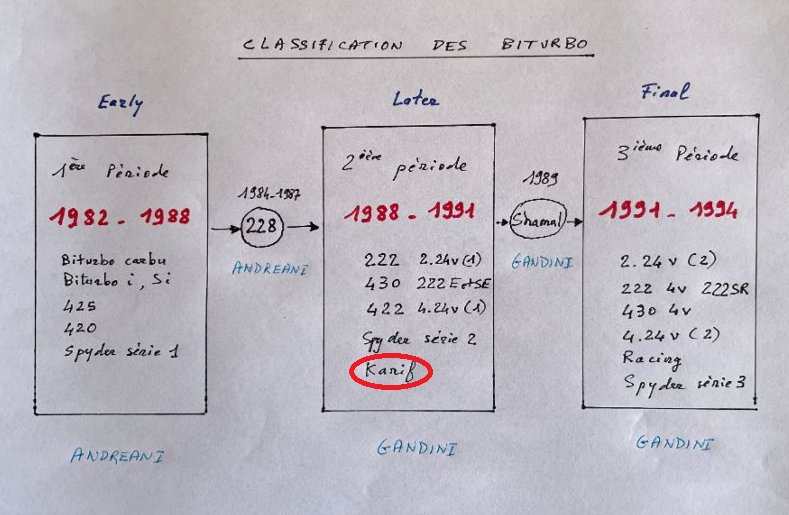 CLASSIFICATION DES BITURBO
Early
1ère Période
1982 - 1988
Biturbo carbu
Biturbo i, Si
425
420
Spyder série 1
ANDREANI
1984-1987
228
ANDREANI
Later
2ième période
1988 - 1991
222 2.24v (1)
430 222 E et SE
422 4.24v (1)
Spyder série 2
Karif
GANDINI
1989
Shamal
GANDINI
Final
3ième Période
1991 - 1994
2.24v (2)
222 4v 222SR
430 4v
4.24v (2)
Racing
Spyder série 3
GANDINI